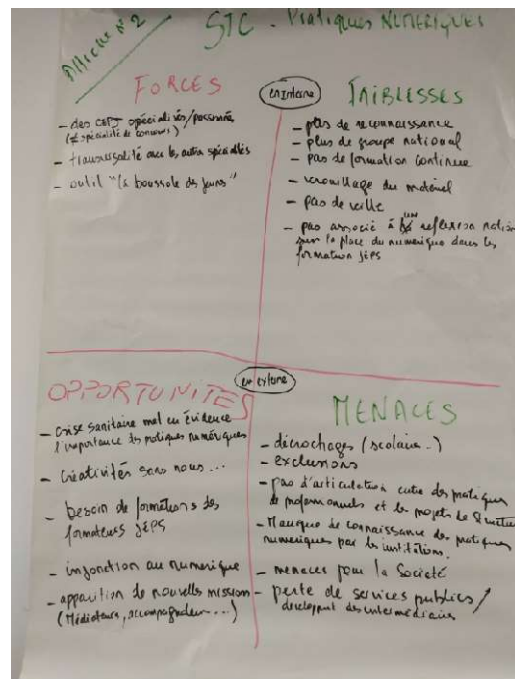 AFFICHE N°2
STC - Pratiques NUMERIQUES
FORCES
- des CEPJ spécialisés/passionné
(≠ spécialité de concours)
- transversalité avec les autres spécialités
- outil "la boussole des jeunes"
en interne
FAIBLESSES
- pas de reconnaissance
- plus de groupe national
- pas de formation continue
- verrouillage du matériel
- pas de veille
- pas associé à UN reflexion
sur la place du numérique dans les
formation JEPS
en externe
OPPORTUNITES
- crise sanitaire met en évidence
l'importance des pratiques numériques
- Créativités sans nous...
- besoin de formations des
formateurs JEPS
- injonction au numérique
- apparition de nouvelles mission
(Médiateurs, accompagnateur...)
MENACES
- décrochages (scolaire..)
- exclusions
- pas d'articulation entre des pratiques
de professionnels et les projets de
- Manque de connaissance des pratiques
numériques par les institutions.
- menaces pour la Société
- perte de services publics /
developpt des intermédiaires